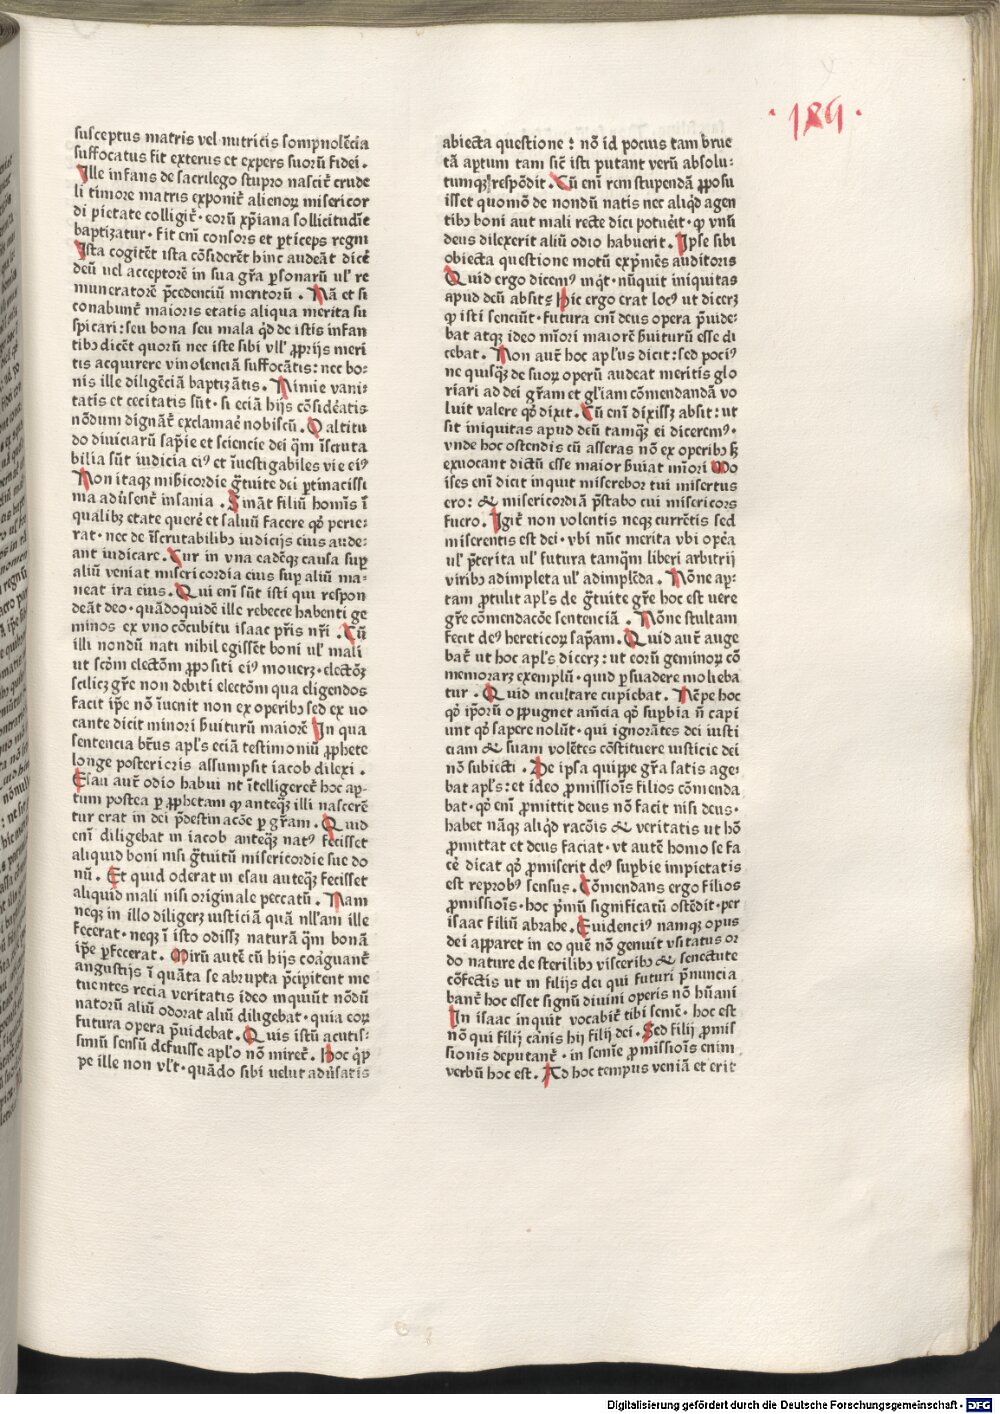 ·189·
susceptus matris vel nutricis sompnolēcia
suffocatus fit exterus et expers suorū fidei.
Ille infans de sacrilego stupro nascit̄ crude
li timore matris exponit̄ alienoꝝ misericor
di pietate colligit̄· eorū xp̄iana sollicitudīe
baptizatur· fit em̄ consors et ꝑticeps regni
Ista cogitēt ista cōsiderēt hinc audeāt dicē
deū uel acceptorē in sua gr̄a ꝑsonarū ul' re
muneratorē p̄cedenciū meritorū. Nā et si
conabunt̄ maioris etatis aliqua merita su
spicari: seu bona seu mala q̇d de istis infan
tibꝫ dicēt quorū nec iste sibi vll' ꝓprijs meri
tis acquirere vinolenciā suffocātis: nec bo-
nis ille diligēciā baptizātis. Nimie vani-
tatis et cecitatis sūt· si eciā hijs cōsideratis
nōdum dignāt̄ exclamae nobiscū. O altitu
do diuiciarū sap̄ie et sciencie dei q̄m īscruta
bilia sūt iudicia eiꝰ et īuestigabiles vie eiꝰ
Non itaqꝫ mīsericordie g̈tuite dei ꝑtinacissi
ma adūsent̄ insania. Sināt filiū homīs ī
qualibꝫ etate querē et saluū facere qḋ perie-
rat· nec de īscrutabilibꝫ iudicijs eius aude-
ant iudicare. Cur in vna eadēqꝫ causa suꝑ
aliū veniat misericordia eius suꝑ aliū ma-
neat ira eius. Qui em̄ sūt isti qui respon
deāt deo· quādoquidē ille rebecce habenti ge
minos ex vno cōcubitu isaac pr̄is nr̄i. Cū
illi nondū nati nihil egissēt boni ul' mali
ut scd̄m electōm ꝓpositi eiꝰ mouerꝫ· electōꝫ
scilicꝫ gr̄e non debiti electōm qua eligendos
facit ip̄e nō īuenit non ex operibꝫ sed ex uo
cante dicit minori ẜuiturū maiorē In qua
sentencia bt̄us apl's eciā testimoniū ꝓphete
longe posterioris assumpsit iacob dilexi.
Esau aut̄ odio habui nt ītelligeret̄ hoc aꝑ-
tum postea ꝑ ꝓphetam ꝙ anteqꝫ illi nascerē
tur erat in dei p̄destinacōe ꝑ gr̄am. Quid
em̄ diligebat in iacob anteqꝫ natꝰ fecisset
aliquid boni nisi g̈tuitū misericordie sue do
nū. Et quid oderat in esau anteqꝫ fecisset
aliquid mali nisi originale peccatū. Nam
neqꝫ in illo diligerꝫ iusticiā quā nll'am ille
fecerat· neqꝫ ī isto odissꝫ naturā q̄m bonā
ip̄e ꝑfecerat. Mirū autē cū hijs coāguant̄
angustijs ī quāta se abrupta p̄cipitent me
tuentes recia veritatis ideo inquiūt nōdū
natorū aliū odorat aliū diligebat· quia eoꝝ
futura opera p̄uidebat. Quis istū acutis-
simū sensū defuisse apl'o nō miret̄. Hoc q̇ꝑ
pe ille non vl't· quādo sibi uelut adūsatis
abiecta questione: nō id pocius tam breue
tā aꝑtum tam sic̄ isti putant verū absolu-
tumqꝫ respōdit. Cū em̄ rem stupendā ꝓposu
isset quomō de nondū natis nec aliq̇d agen
tibꝫ boni aut mali recte dici potueīt· ꝙ vnū
deus dilexerit aliū odio habuerit. Ipse sibi
obiecta questione motū exp̄mēs auditoris
Quid ergo dicemꝰ inq̇t· nūquit iniquitas
apud deū absit: Hic ergo erat locꝰ ut dicerꝫ
ꝙ isti senciūt· futura em̄ deus opera p̄uide-
bat atqꝫ ideo mīori maiorē ẜuiturū esse di
cebat. Non aut̄ hoc apl'us dicit: sed pociꝰ
ne quisqꝫ de suoꝝ operū audeat meritis glo
riari ad dei gr̄am et gl'iam cōmendandā vo
luit valere qḋ dixit. Cū em̄ dixissꝫ absit: ut
sit iniquitas apud deū tamqꝫ ei diceremꝰ·
vnde hoc ostendis cū asseras nō ex operibꝫ sꝫ
exuocant dictū esse maior ẜuiat mīori Mo
ises em̄ dicit inquit miserebor tui misertus
ero: & misericordiā p̄stabo cui misericors
fuero. Igit̄ non volentis neqꝫ currētis sed
miserentis est dei· vbi nūc merita vbi opēa
ul' p̄terita ul' futura tamq̄m liberi arbitrij
viribꝫ adimpleta ul' adimplēda. Nōne aꝑ-
tam ꝓtulit apl's de g̈tuite gr̄e hoc est uere
gr̄e cōmendacōe sentenciā. Nōne stultam
fecit deꝰ hereticoꝝ sap̄am. Quid aut̄ auge
bat̄ ut hoc apl's dicerꝫ: ut eorū geminoꝝ cō
memorarꝫ exemplū· quid ꝑsuadere molieba
tur. Quid incultare cupiebat. Nēpe hoc
qḋ ip̄orū oppugnet amēcia qḋ suꝑbia n̄ capi
unt qḋ sapere nolūt· qui ignorātes dei iusti
ciam & suam volētes cōstituere iusticie dei
nō subiecti. De ipsa quippe gr̄a satis age-
bat apl's: et ideo ꝓmissiōis filios cōmenda
bat· qḋ em̄ ꝓmittit deus nō facit nisi deus·
habet nāqꝫ aliq̇d racōis & veritatis ut hō
ꝓmittat et deus faciat· vt autē homo se fa
cē dicat qḋ ꝓmiserit deꝰ suꝑbie impietatis
est reprobꝰ sensus. Cōmendans ergo filios
ꝓmissiōis· hoc p̄mū significatū ostēdit· per
isaac filiū abrahe. Euidenciꝰ namqꝫ opus
dei apparet in eo quē nō genuit vsitatus or
do nature de sterilibꝫ visceribꝫ & senectute
cōfectis ut in filijs dei qui futuri p̄nuncia
bant̄ hoc esset signū diuini operis nō hūani
In isaac inquit vocabit̄ tibi semē· hoc est
nō qui filij carnis hij filij dei. Sed filij ꝓmis
sionis deputant̄· in semīe ꝓmissiōis enim
verbū hoc est. Ad hoc tempus veniā et erit
Digitalisierung gefördert durch die Deutsche Forschungsgemeinschaft - DFG